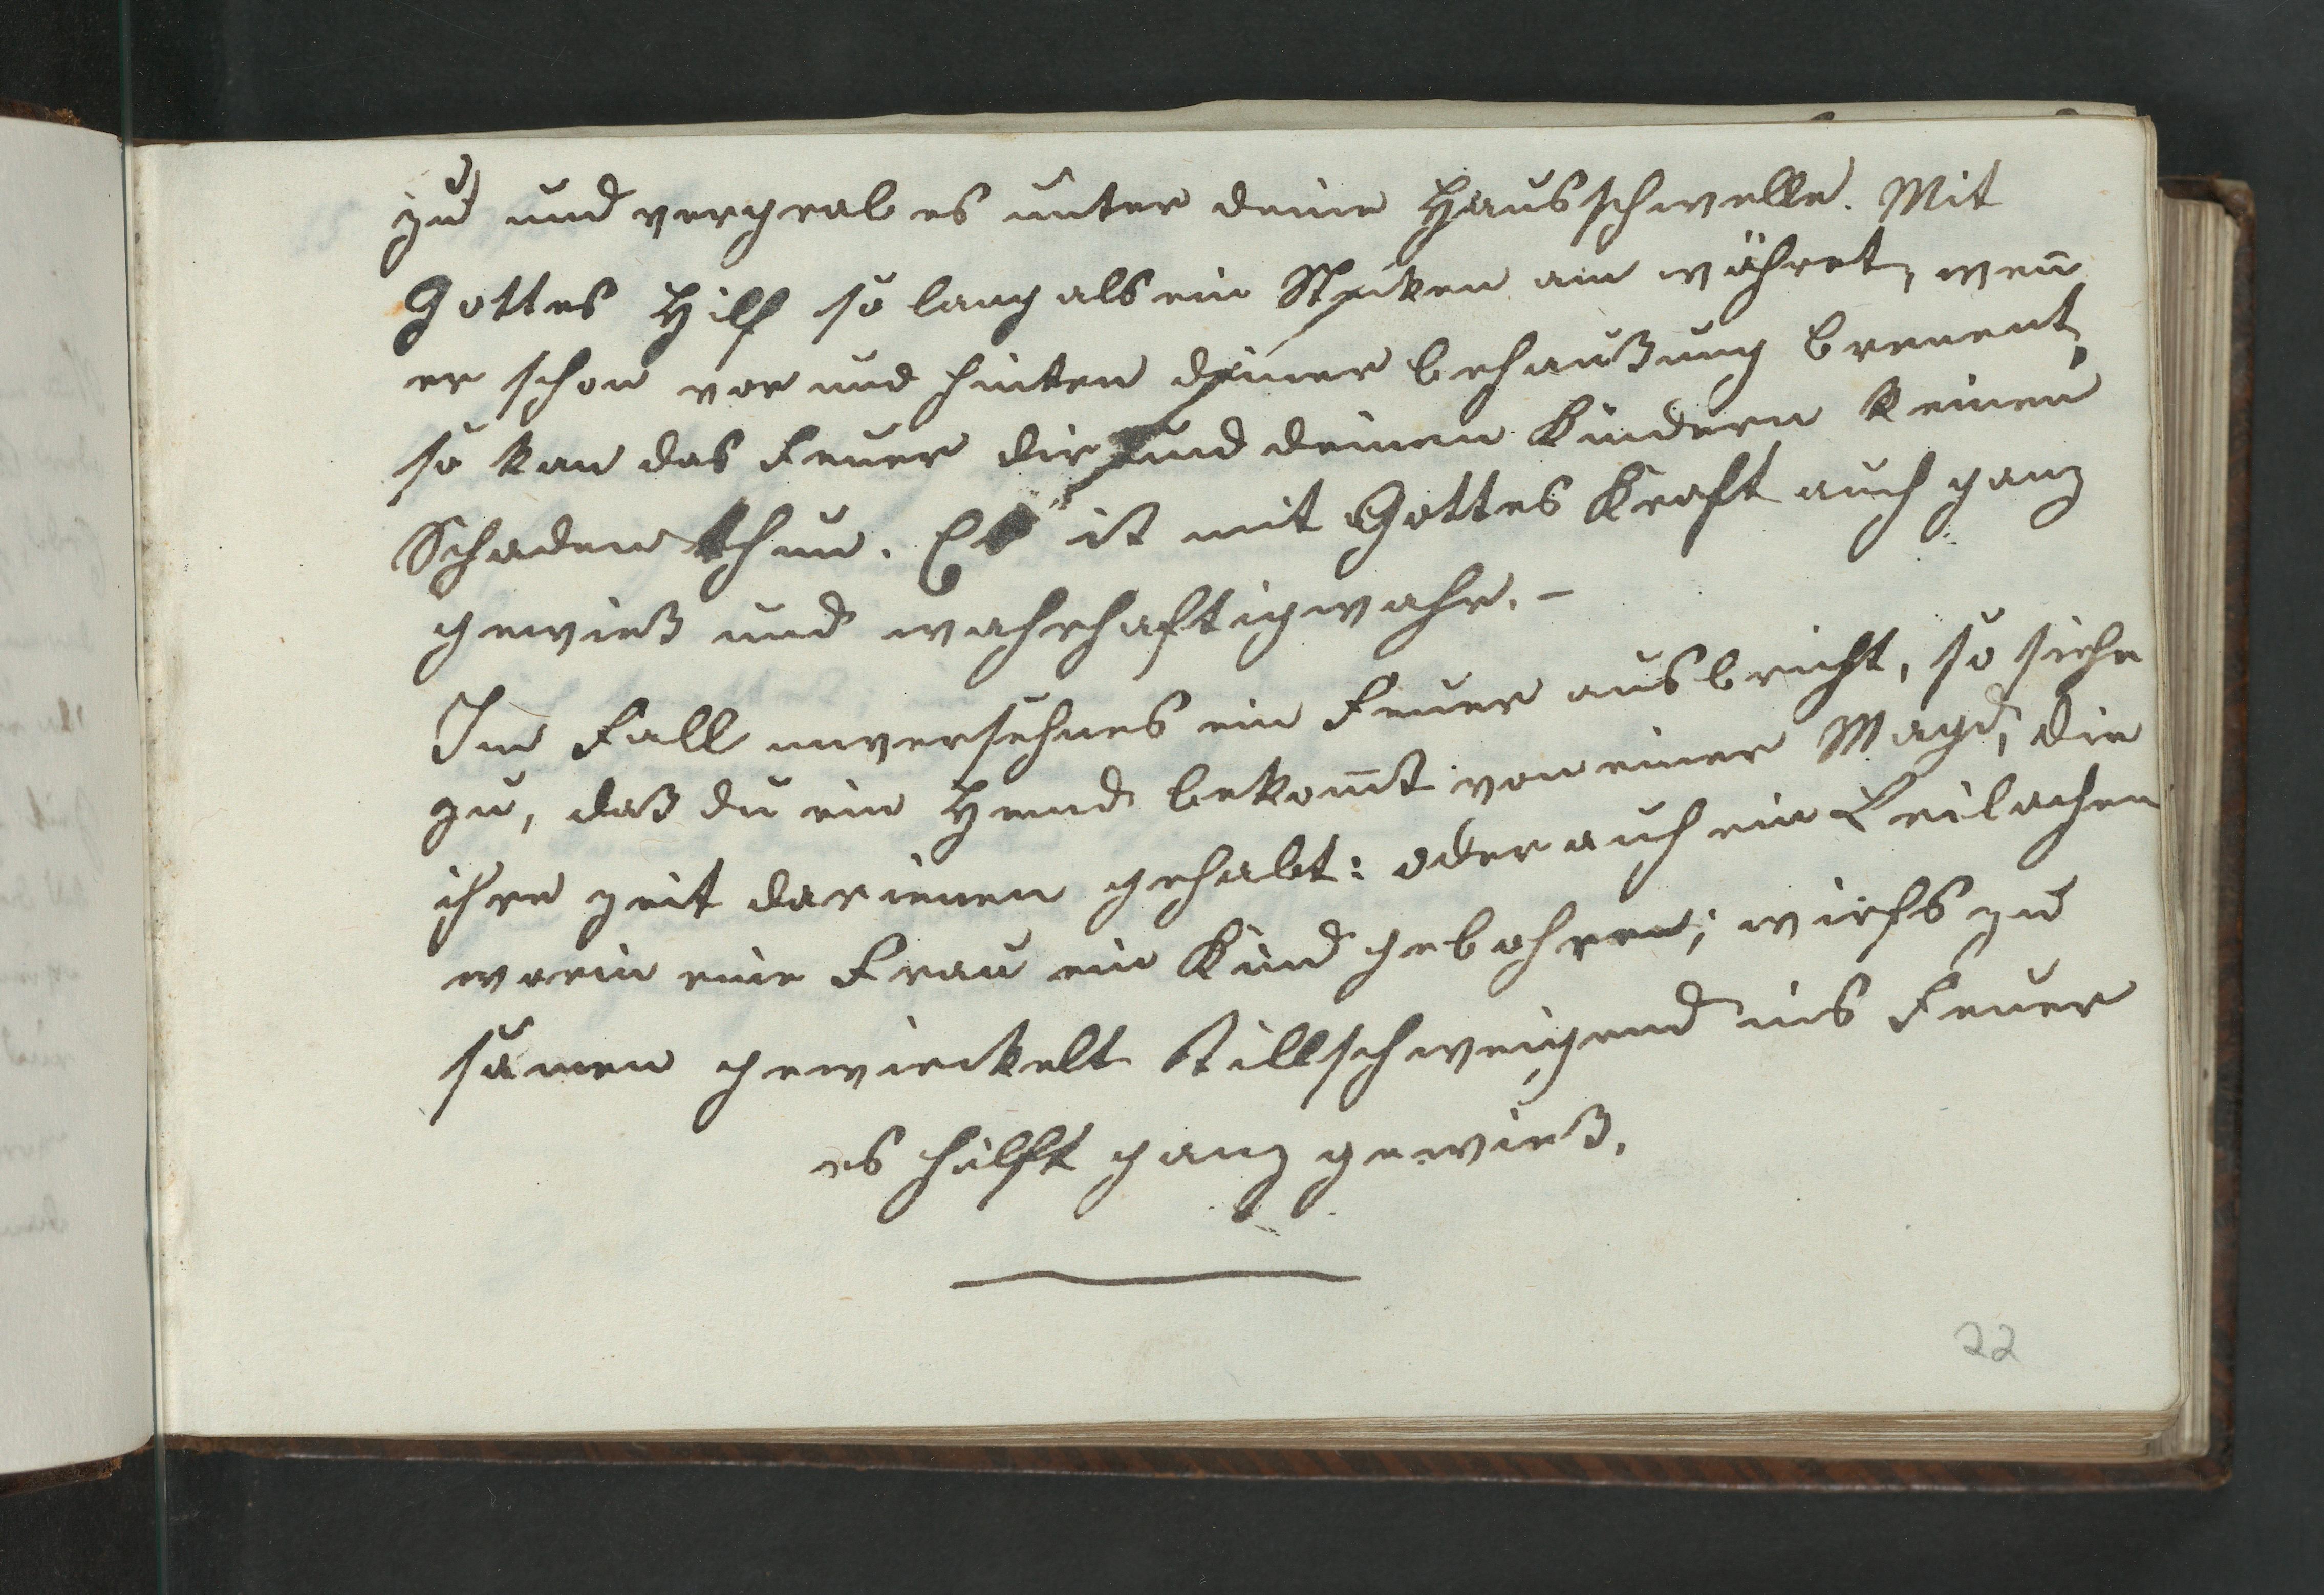 zu und vergrab es unter deine Hausschwelle. Mit
Gottes Hilf so lang als ein Stecken am währet, wen̄
er schon vor und hinten deiner behaußung brenent,
so kan das Feuer dir und deinen Kindern keinen
Schaden thun. Es ist mit Gottes Kraft auch ganz
gewieß und wahrhaftig wahr. –
Im Fall unversehnes ein Feuer ausbricht, so siehe
zu, daß du ein Hemd bekom̄st von einer Magd, die
ihre zeit darienen gehabt: oder auch ein Leilachen
worin eine Frau ein Kind gebohren; wirfs zu
samen gewickelt stillschweigend ins Feuer
es hülft ganz gewieß.
22